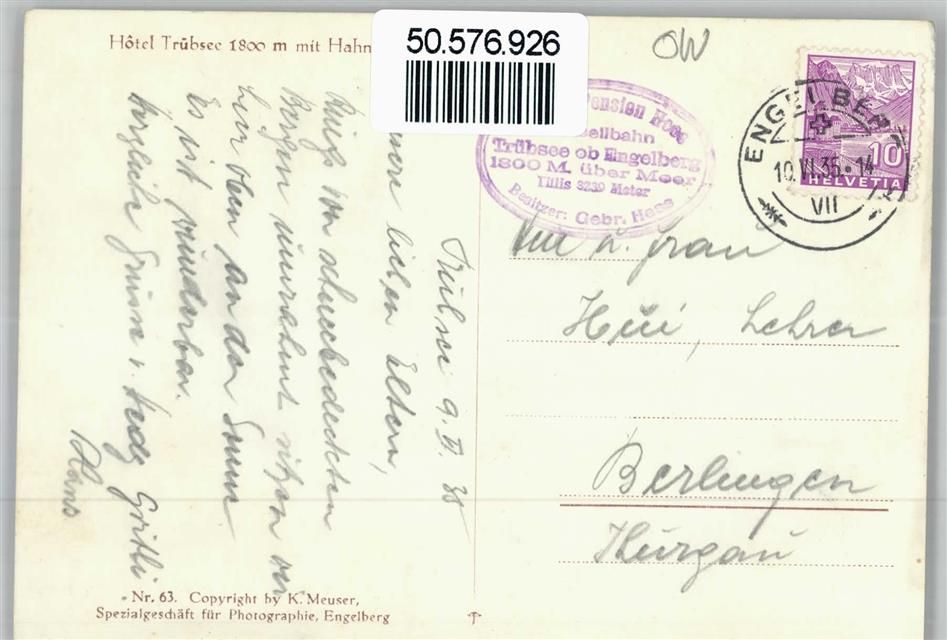 Hôtel Trübsee 1800 m mit Hahn
50.576.926
OW
Pension Hess
Seilbahn
Trübsee ob Engelberg
1800 M. über Meer
Titlis 3239 Meter
Besitzer: Gebr. Hess
ENGELBERG
10.VI.35-14
VII
10
HELVETIA
Trübsee 9. VI. 35
lieben Eltern,
Rings von schneebedeckten
Bergen umrahmt sitzen wir
hier oben an der Sonne
Es ist wunderbar.
Herzliche Grüsse v. Hedy Gritli
Hans
u. Frau
Hüi, Lehrer
Berlingen
Thurgau
Nr. 63. Copyright by K. Meuser,
Spezialgeschäft für Photographie, Engelberg